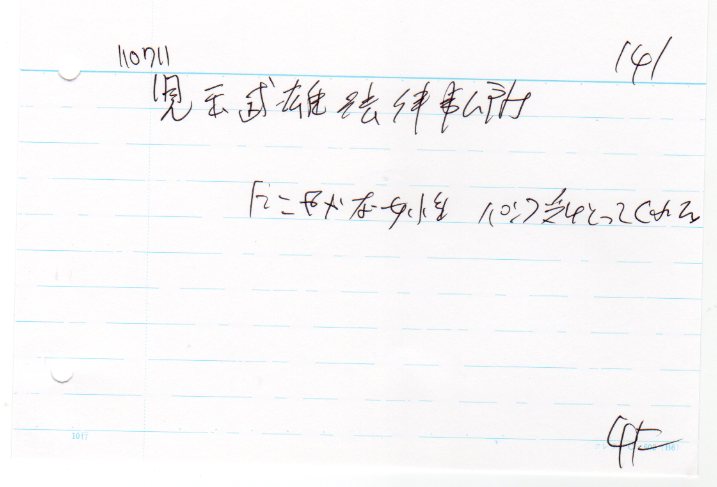 110711
141
児玉武雄法律事務所
にこやかな女性 パンフ受けとってくれる
1017